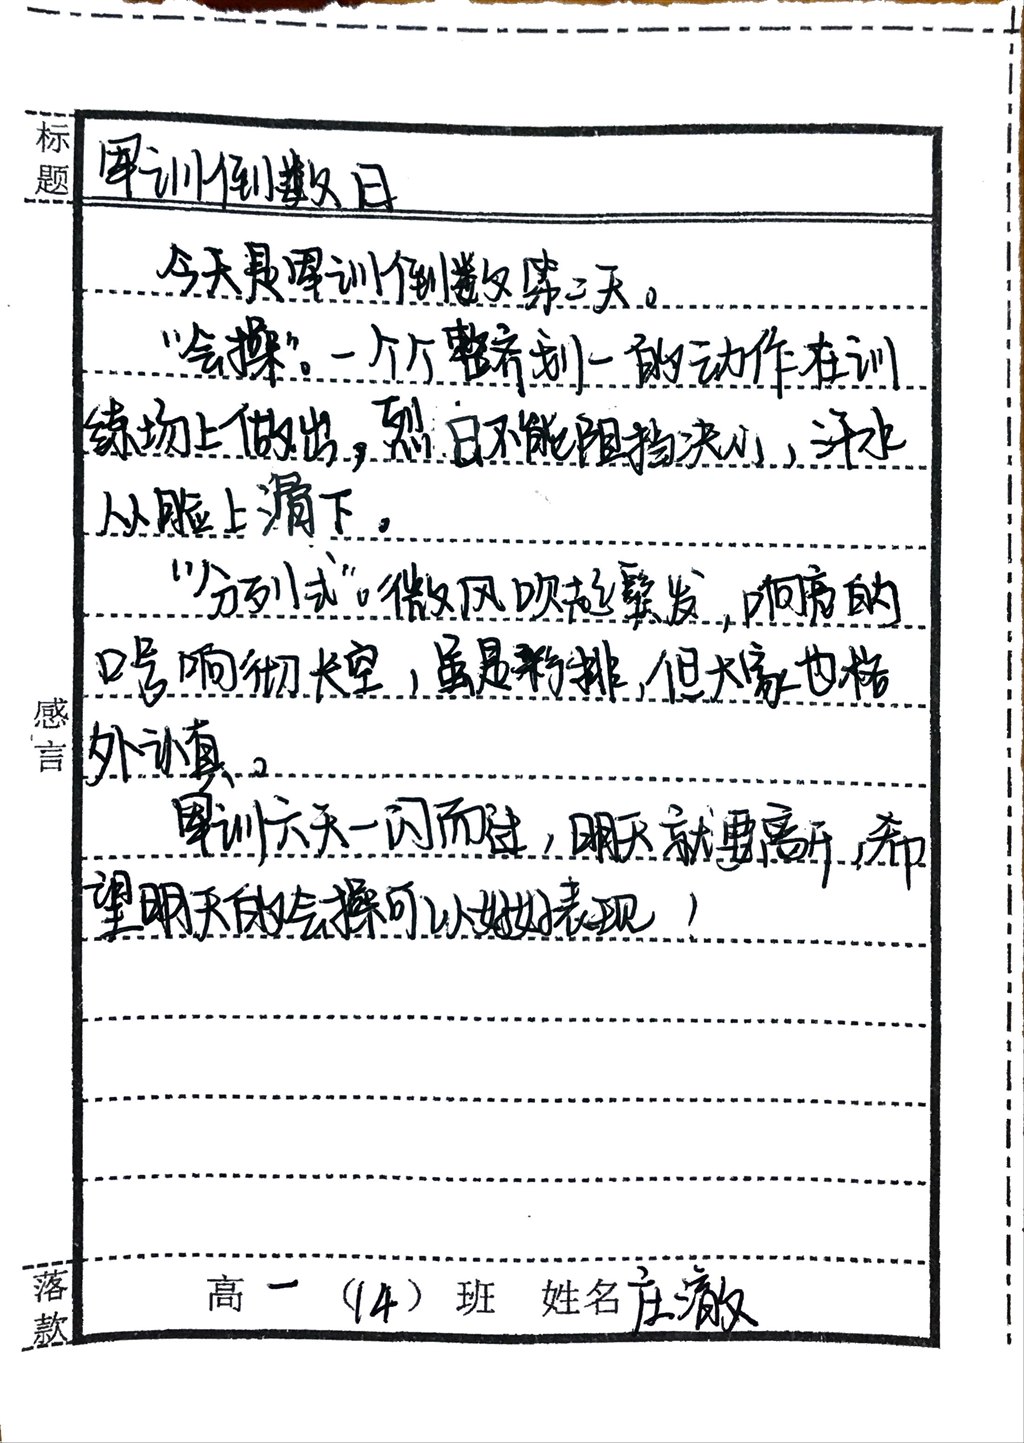 标题
军训倒数日
今天是军训倒数第二天。
“会操”。一个个整齐划一的动作在训
练场上做出，烈日不能阻挡决心，汗水
从脸上滑下。
“分列式”。微风吹起鬓发，响亮的
口号响彻长空，虽是彩排，但大家也格
外认真。
军训六天一闪而过，明天就要离开，希
望明天的会操可以好好表现！
感言
落款
高一（14）班 姓名庄澈